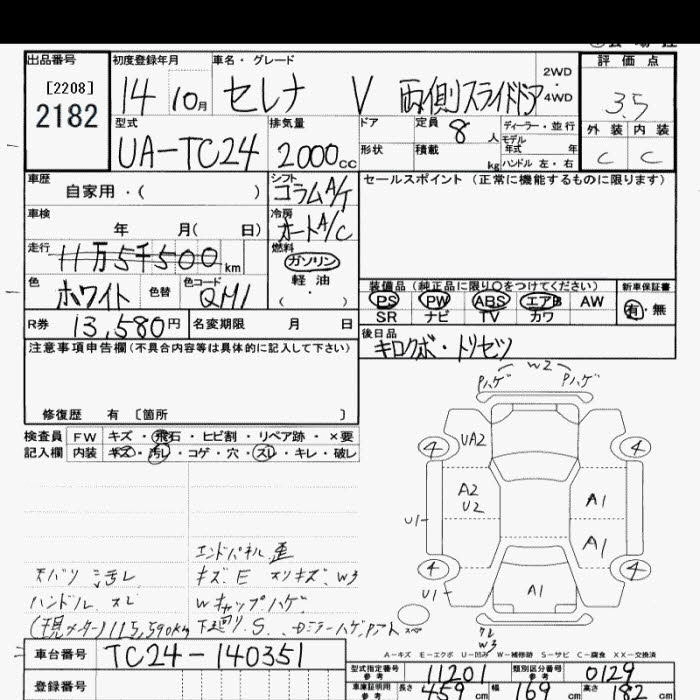 出品番号 初度登録年月 車名・グレード 評価点
[2208]
2182
14 10月 セレナ V 両側スライドドア 2WD 4WD 3.5
型式 排気量 ドア 定員 8人 ディーラー・並行 外装 内装
UA-TC24 2000cc 形状 積載 kg モデル年式 年 ハンドル 左・右 C C
車歴 自家用・( ) シフト コラムA/T セールスポイント (正常に機能するものに限ります)
車検 年 月( 日) 冷房 オートA/C
走行 11万5千500km 燃料 ガソリン
軽油
( )
色 ホワイト 色替 色コード QM1
装備品 (純正品に限り○をつけてください) 新車保証書
PS PW ABS エアB AW 有・無
SR ナビ TV カワ
R券 13,580円 名変期限 月 日 後日品
キロクボ・トリセツ
注意事項申告欄(不具合内容等は具体的に記入して下さい)
修復歴 有 〔箇所 〕
検査員 FW キズ・飛石・ヒビ割・リペア跡・×要
記入欄 内装 キズ・汚レ・コゲ・穴・スレ・キレ・破レ
W2
Pハゲ Pハゲ
4 UA2 4
A2
U2 A1
U1 A1
4 4
U1 A1
W3
エンドパネル 歪
天バリ 汚レ キズ.E スリキズ.W3
ハンドル スレ Wキャップハゲ
(現メーター)115,590km 下廻り.S.
A-キズ E-エクボ U-凹み W-補修跡 S-サビ C-腐食 XX-交換済
車台番号 TC24-140351
型式指定番号 参考 11201 類別区分番号 参考 0129
登録番号 車庫証明用 参考 長さ 459cm 幅 169cm 高さ 182cm